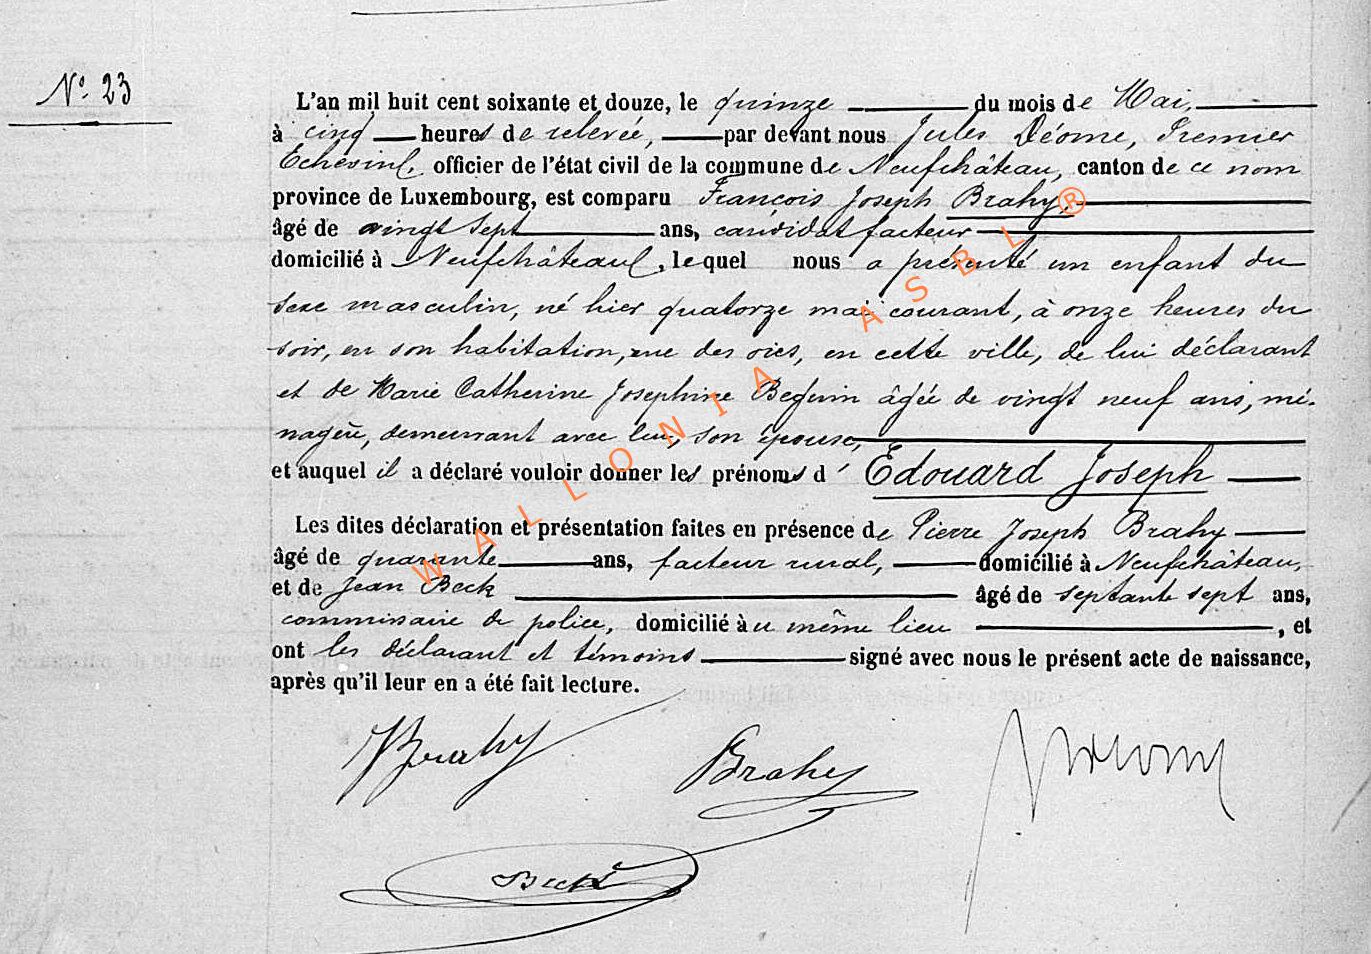 N° 23
L'an mil huit cent soixante et douze, le quinze du mois de Mai,
à cinq heures de relevée, par devant nous Jules Déome, Premier
Echevin, officier de l'état civil de la commune de Neufchâteau, canton de ce nom
province de Luxembourg, est comparu François Joseph Brahy,
âgé de vingt sept ans, candidat facteur
domicilié à Neufchâteau, lequel nous a présenté un enfant du
sexe masculin, né hier quatorze mai courant, à onze heures du
soir, en son habitation, rue des oies, en cette ville, de lui déclarant
et de Marie Catherine Josephine Beguin âgée de vingt neuf ans, mé-
nagère, demeurant avec lui, son épouse,
et auquel il a déclaré vouloir donner les prénoms d' Edouard Joseph
Les dites déclaration et présentation faites en présence de Pierre Joseph Brahy
âgé de quarante ans, facteur rural, domicilié à Neufchâteau,
et de Jean Beck âgé de septante sept ans,
commissaire de police, domicilié au même lieu , et
ont les déclarant et témoins signé avec nous le présent acte de naissance,
après qu'il leur en a été fait lecture.
Brahy Brahy
Beck
WALLONIA ASBL®